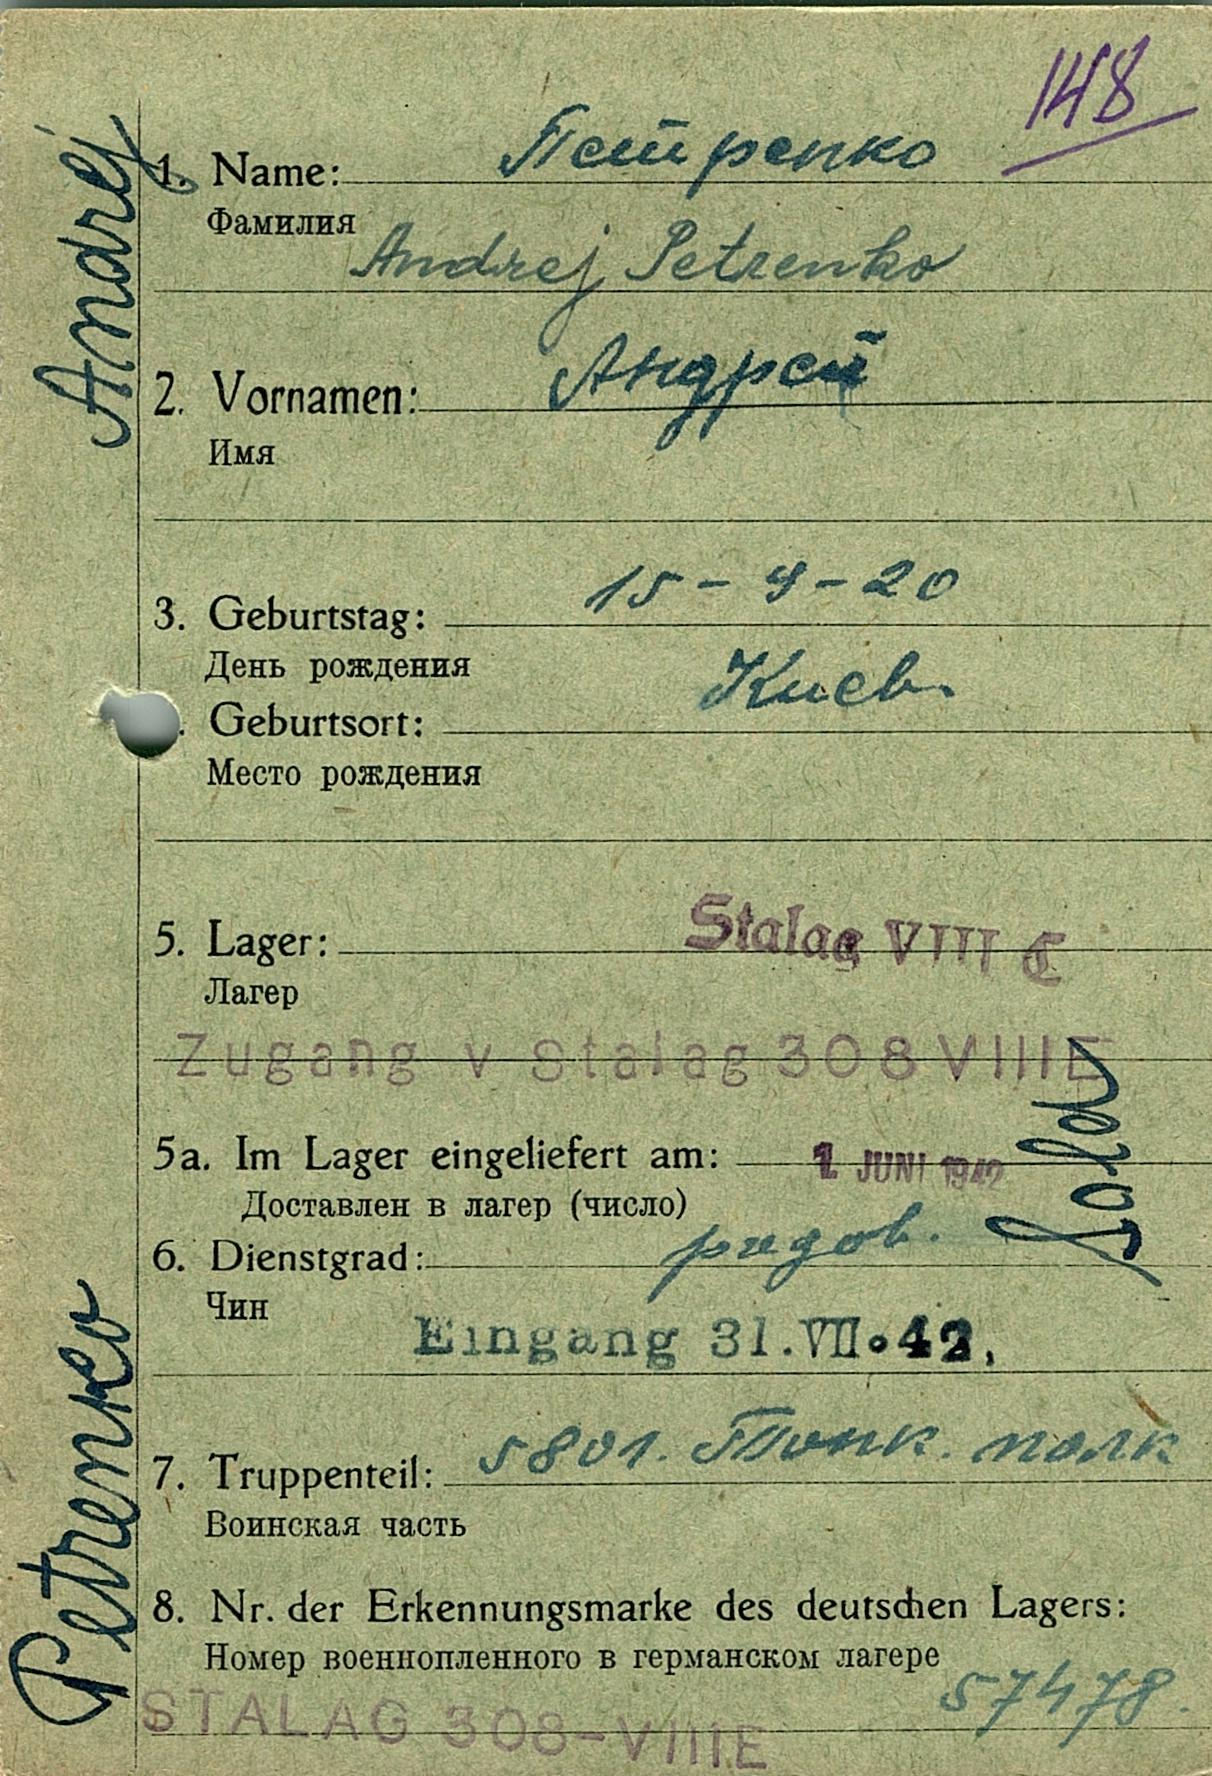 148
1. Name: Петренко
Фамилия
Andrej Petrenko
2. Vornamen: Андрей
Имя
3. Geburtstag: 15-9-20
День рождения
Geburtsort: Киев.
Место рождения
5. Lager: Stalag VIII C
Лагер
Zugang v Stalag 308 VIIIE
5a. Im Lager eingeliefert am: 1. JUNI 1942
Доставлен в лагер (число)
6. Dienstgrad: рядов.
Чин
Sold
Eingang 31.VII.42.
7. Truppenteil: 5801. полк
Воинская часть
8. Nr. der Erkennungsmarke des deutschen Lagers:
Номер военнопленного в германском лагере
57478.
STALAG 308-VIIIE
Petrenko Andrej